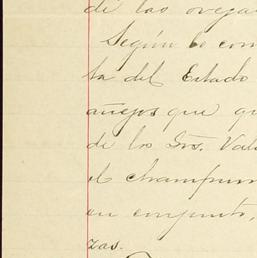 de las ovejas
Según lo com
ta del Estado
añejos que qu
de los Srs. Val
el champurr
en conjunto,
zas.